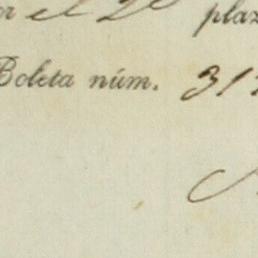 el 2º plaz
Boleta núm. 31